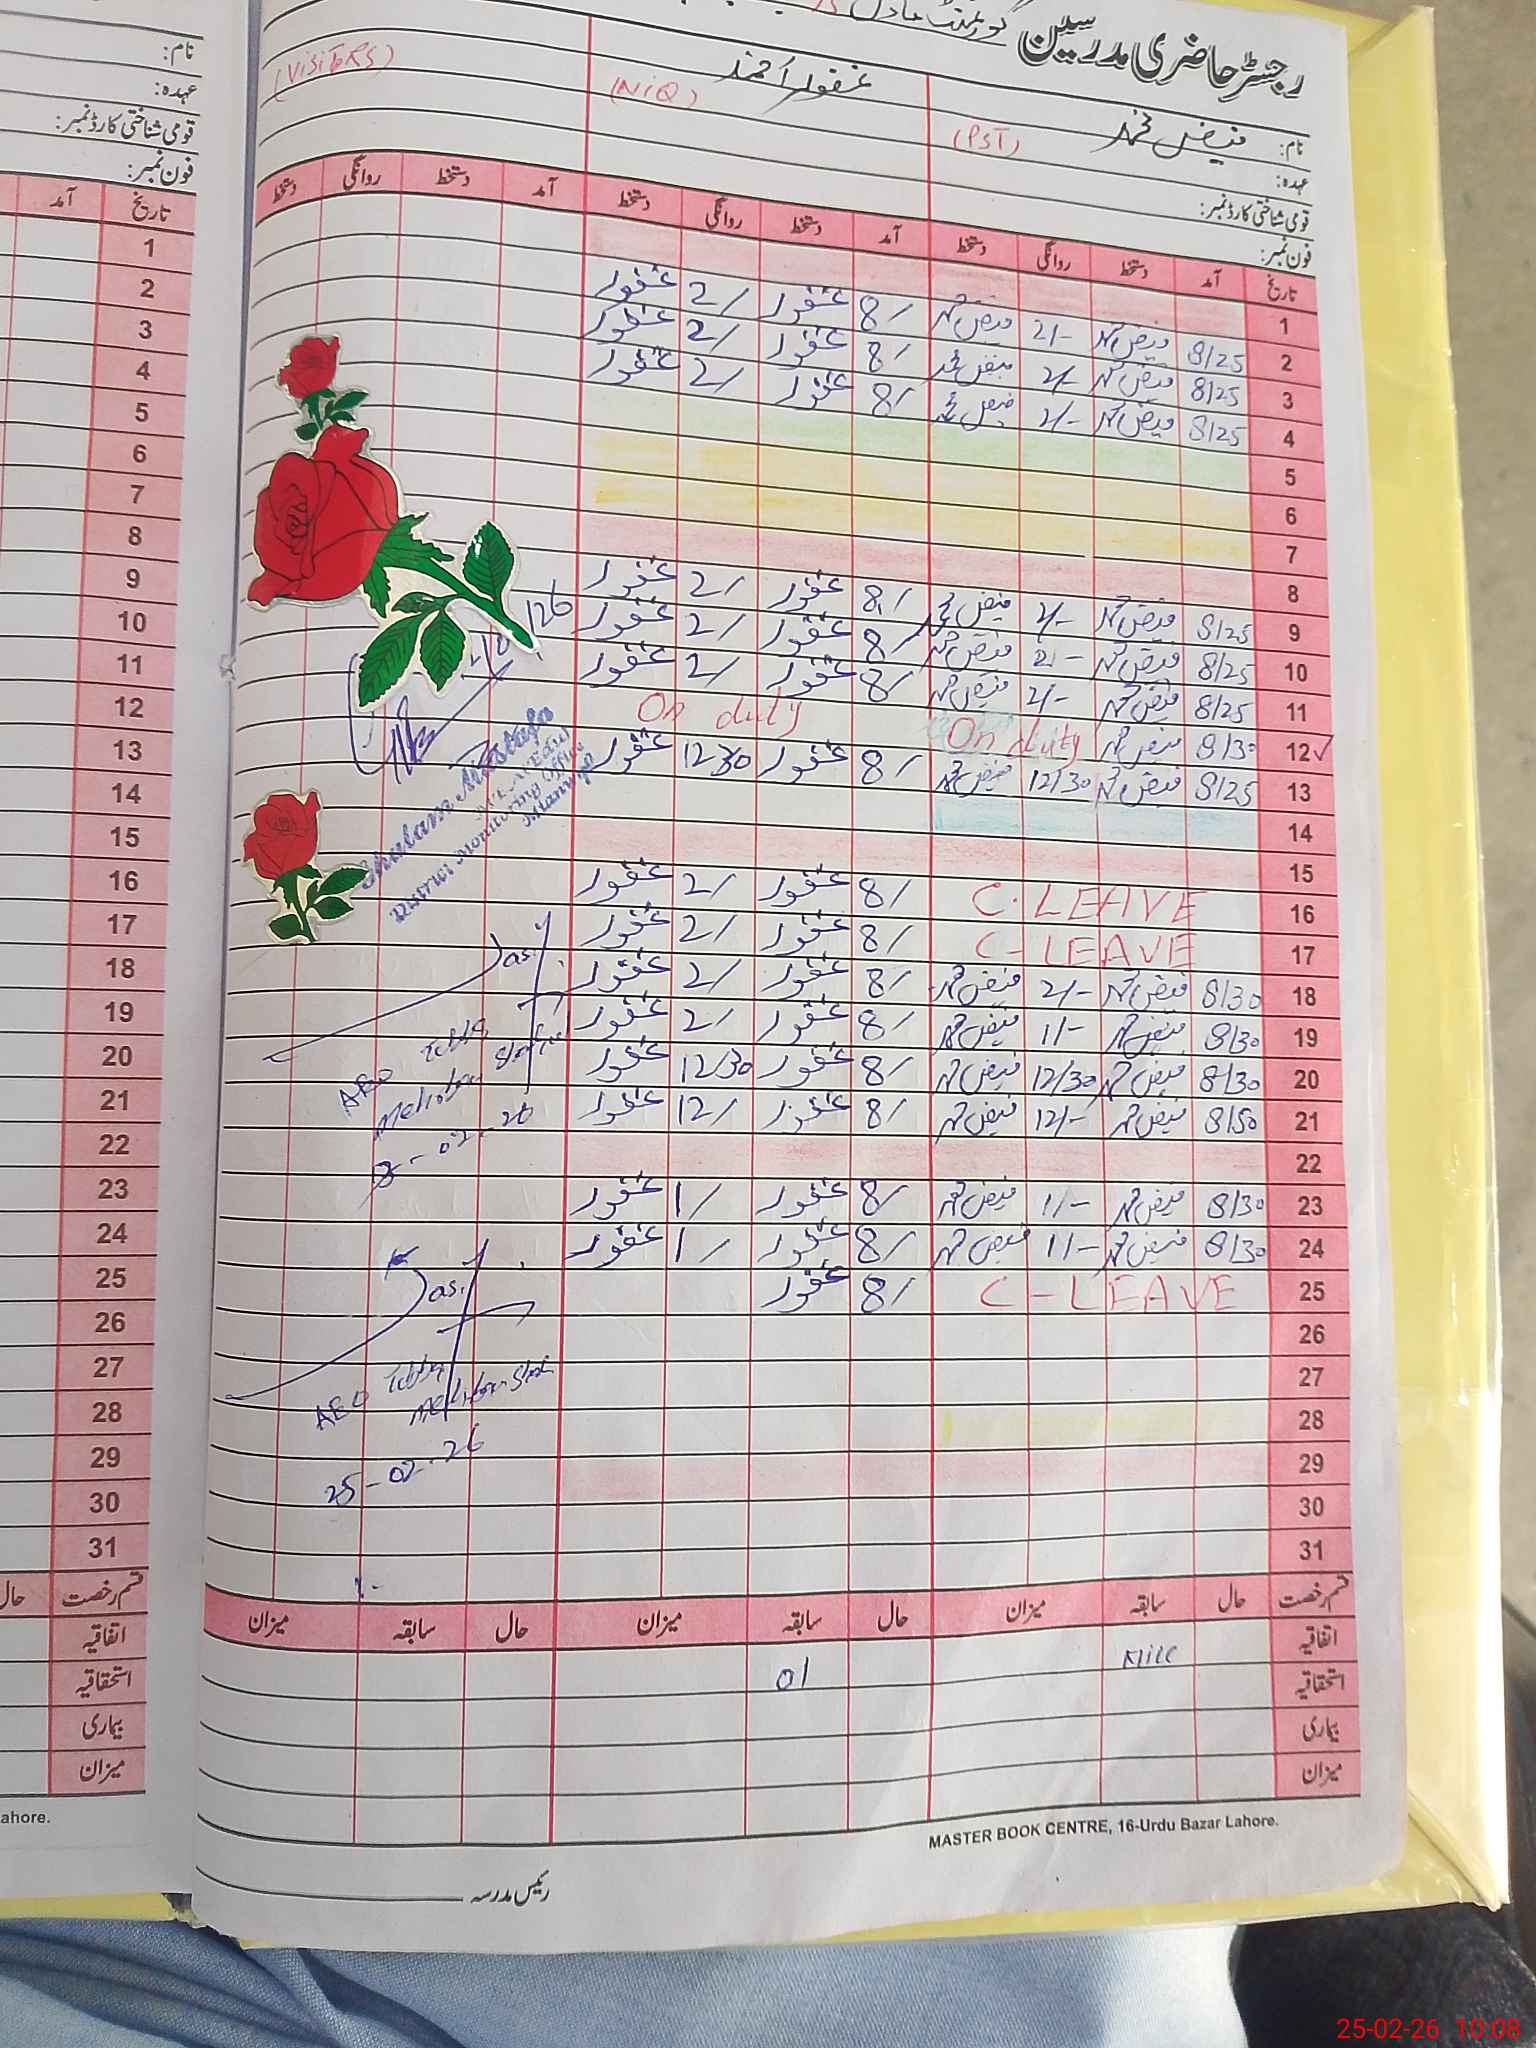 رجسٹر حاضری مدرسین
نام: فیض محمد (PST) غفور احمد (NiQ) (VisitoRs)
عہدہ:
قومی شناختی کارڈ نمبر:
فون نمبر:
تاریخ آمد دستخط روانگی دستخط آمد دستخط روانگی دستخط آمد دستخط روانگی دستخط
1
2 8/25 فیض محمد 2/- فیض محمد 8/ غفور 2/ غفور
3 8/25 فیض محمد 2/- فیض محمد 8/ غفور 2/ غفور
4 8/25 فیض محمد 2/- فیض محمد 8/ غفور 2/ غفور
5
6
7
8
9 8/25 فیض محمد 2/- فیض محمد 8/ غفور 2/ غفور
10 8/25 فیض محمد 2/- فیض محمد 8/ غفور 2/ غفور
11 8/25 فیض محمد 2/- فیض محمد 8/ غفور 2/ غفور
12 ✓ 8/30 فیض محمد On duty On duty
13 8/25 فیض محمد 12/30 فیض محمد 8/ غفور 12/30 غفور
14
15
16 C. LEAVE 8/ غفور 2/ غفور
17 C-LEAVE 8/ غفور 2/ غفور
18 8/30 فیض محمد 2/- فیض محمد 8/ غفور 2/ غفور
19 8/30 فیض محمد 1/- فیض محمد 8/ غفور 2/ غفور
20 8/30 فیض محمد 12/30 فیض محمد 8/ غفور 12/30 غفور
21 8/50 فیض محمد 12/- فیض محمد 8/ غفور 12/ غفور
22
23 8/30 فیض محمد 1/- فیض محمد 8/ غفور 1/ غفور
24 8/30 فیض محمد 1/- فیض محمد 8/ غفور 1/ غفور
25 C-LEAVE 8/ غفور
26
27
28
29
30
31
قسم رخصت حال سابقہ میزان حال سابقہ میزان حال سابقہ میزان
اتفاقیہ Nill 01
استحقاقیہ
بیماری
میزان
MASTER BOOK CENTRE, 16-Urdu Bazar Lahore.
رئیس مدرسہ
/26
Ghulam Mustafa
District Monitoring Officer
Mianwali
AEO Tibba
Mehrban Shah
AEO Tibba
Mehrban Shah
25-02-26
نام:
عہدہ:
قومی شناختی کارڈ نمبر:
فون نمبر:
تاریخ آمد
1
2
3
4
5
6
7
8
9
10
11
12
13
14
15
16
17
18
19
20
21
22
23
24
25
26
27
28
29
30
31
قسم رخصت حال
اتفاقیہ
استحقاقیہ
بیماری
میزان
ahore.
25-02-26 10:08